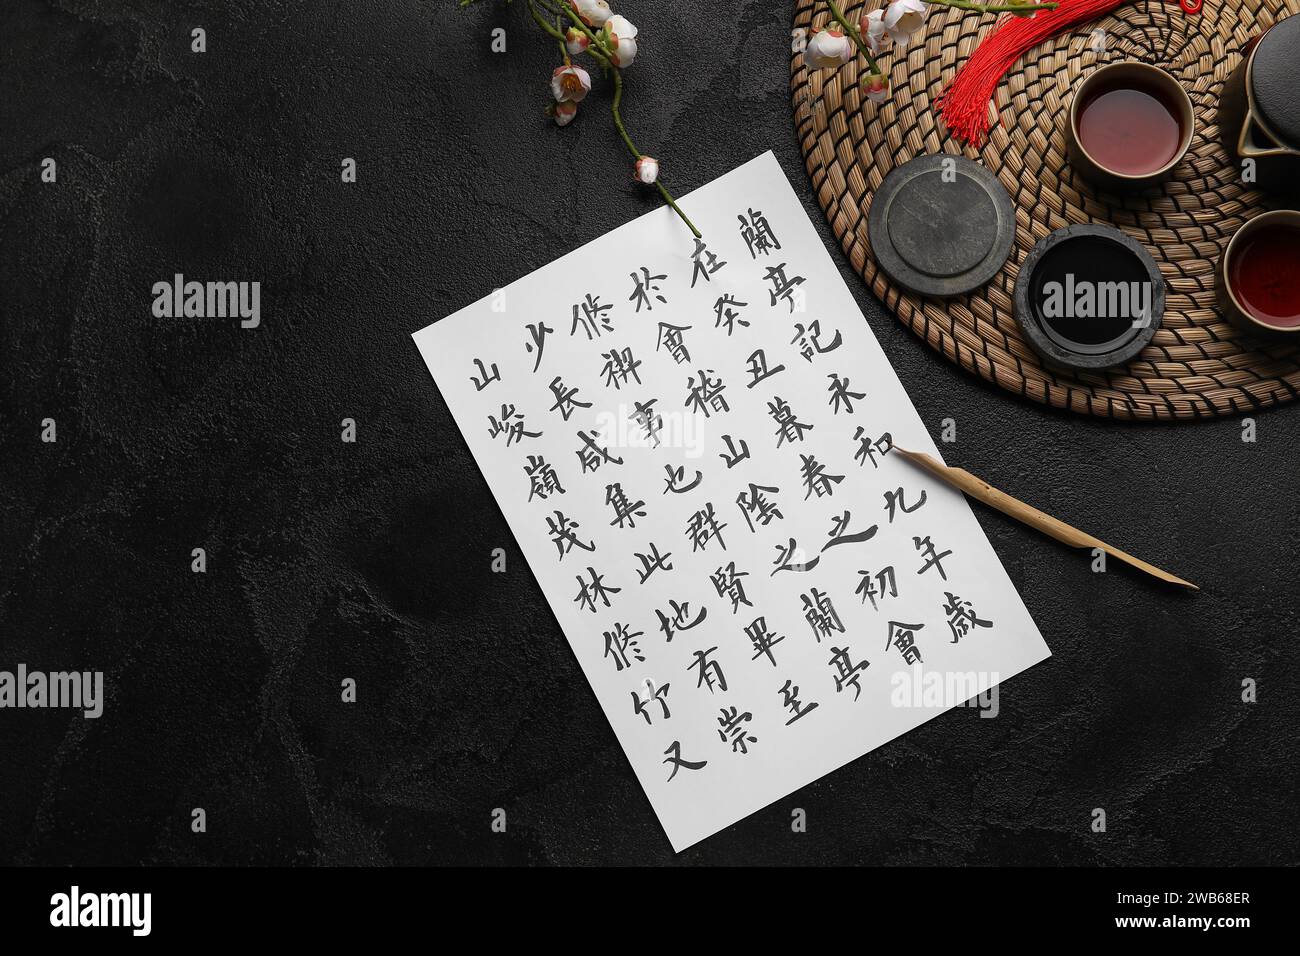 蘭亭記永和九年歲
在癸丑暮春之初會
於會稽山陰之蘭亭
修禊事也群賢畢至
少長咸集此地有崇
山峻嶺茂林修竹又
alamy
Image ID: 2WB68ER
www.alamy.com